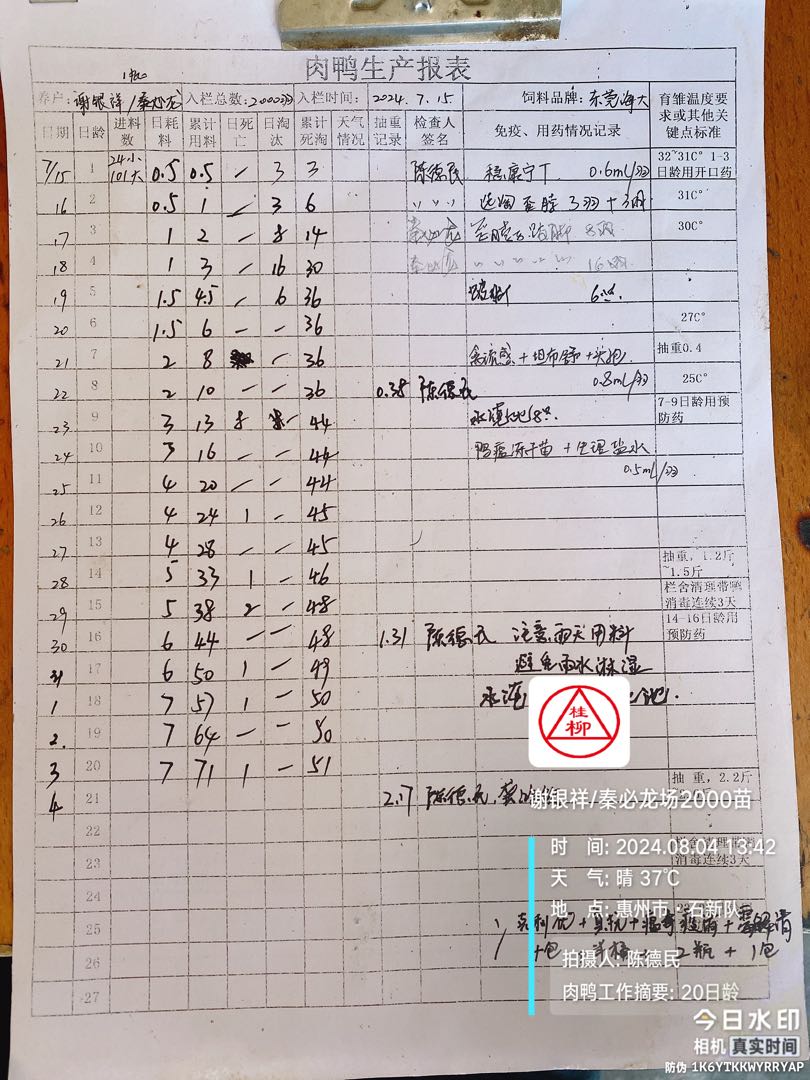 肉鸭生产报表
养户: 谢银祥/秦必龙 入栏总数: 2000羽 入栏时间: 2024.7.15 饲料品牌: 东莞海大 育雏温度要求或其他关键点标准
日期 日龄 进料数 日耗料 累计用料 日死亡 日淘汰 累计死淘 天气情况 抽重记录 检查人签名 免疫、用药情况记录
7/15 1 24小 101大 0.5 0.5 - 3 3 陈德民 0.6ml/羽 32~31C° 1-3日龄用开口药
16 2 0.5 1 - 3 6 31C°
17 3 1 2 - 8 14 30C°
18 4 1 3 - 16 30
19 5 1.5 4.5 - 6 36
20 6 1.5 6 - - 36 27C°
21 7 2 8 - 36 禽流感+坦布舒+头孢 抽重0.4
22 8 2 10 - - 36 0.38 陈德民 0.8ml/羽 25C°
23 9 3 13 8 - 44 7-9日龄用预防药
24 10 3 16 - - 44 鸭瘟冻干苗+生理盐水
25 11 4 20 - - 44 0.5ml/羽
26 12 4 24 1 - 45
27 13 4 28 - - 45
28 14 5 33 1 - 46 抽重,1.2斤~1.5斤
29 15 5 38 2 - 48 栏舍清理带鸭消毒连续3天
30 16 6 44 - - 48 1.31 陈德民 注意雨天用料 14-16日龄用预防药
31 17 6 50 1 - 49 避免雨水淋湿
1 18 7 57 1 - 50
2 19 7 64 - - 50
3 20 7 71 1 - 51
4 21 2.17 陈德民 抽重,2.2斤
22
23 消毒连续3天
24
25
26 2瓶+1包
27
桂柳
谢银祥/秦必龙场2000苗
时 间: 2024.08.04 13:42
天 气: 晴 37℃
地 点: 惠州市·石新队
拍摄人: 陈德民
肉鸭工作摘要: 20日龄
今日水印
相机 真实时间
防伪 1K6YTKKWYRRYAP